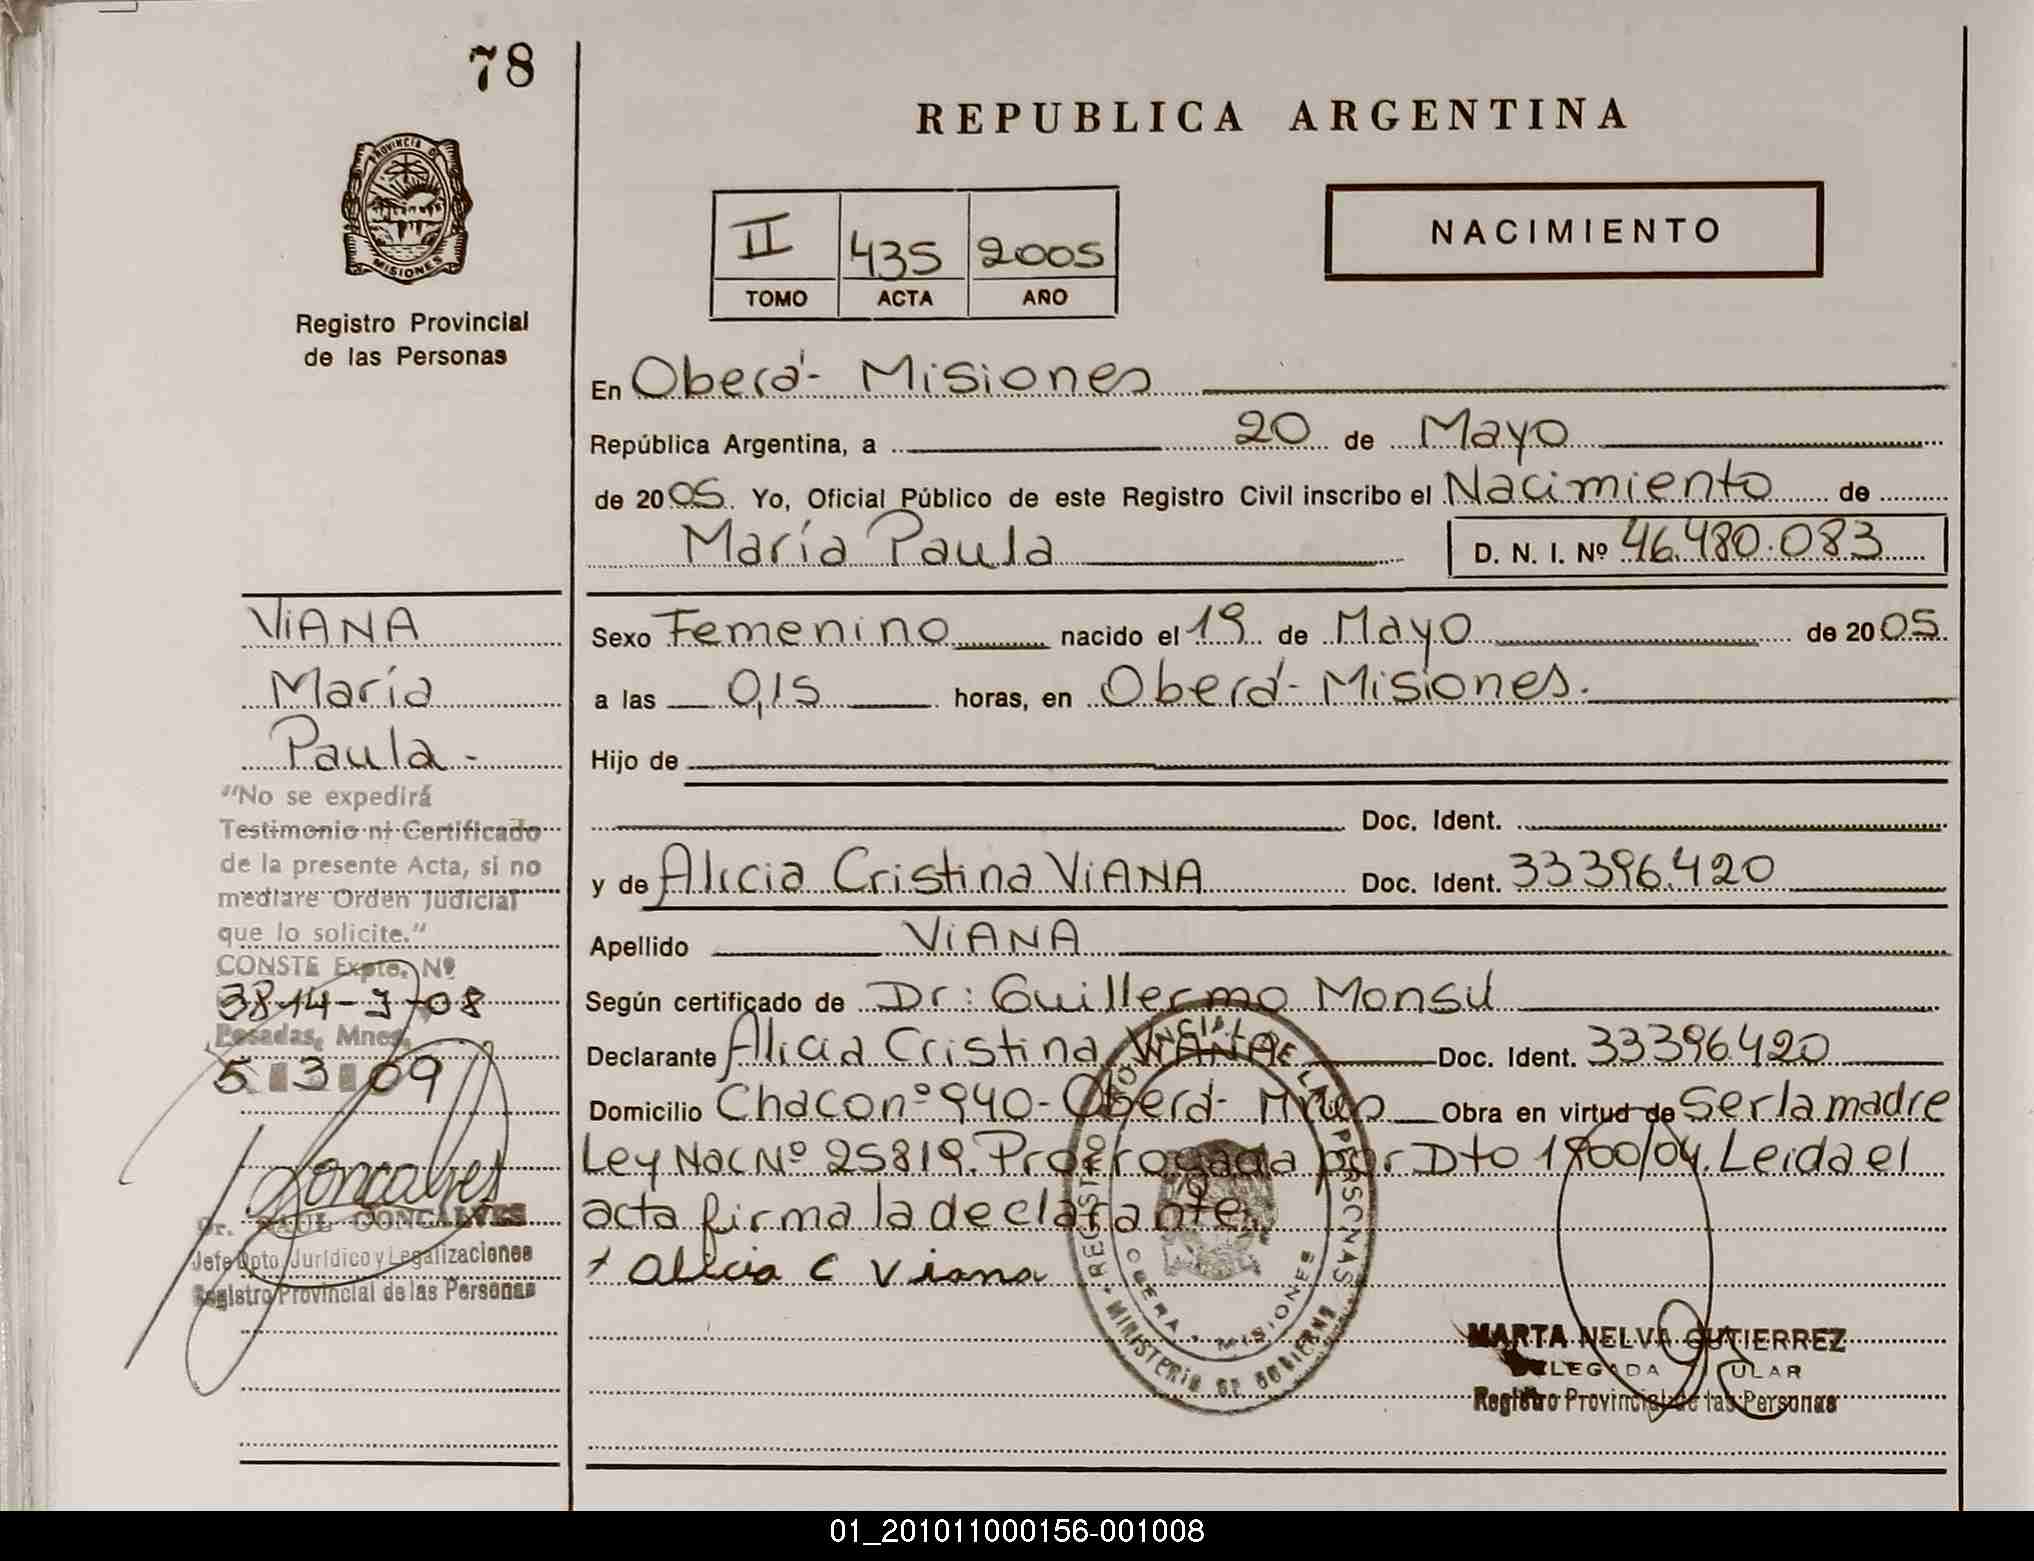 78
PROVINCIA DE
MISIONES
Registro Provincial
de las Personas
REPUBLICA ARGENTINA
II 435 2005
TOMO ACTA AÑO
NACIMIENTO
En Oberá- Misiones
República Argentina, a 20 de Mayo
de 2005. Yo, Oficial Público de este Registro Civil inscribo el Nacimiento de
María Paula D. N. I. Nº 46.480.083
Sexo Femenino nacido el 19 de Mayo de 2005
a las 0,15 horas, en Oberá- Misiones.
Hijo de
Doc. Ident.
y de Alicia Cristina ViANA Doc. Ident. 33396.420
Apellido ViANA
Según certificado de Dr: Guillermo Monsu
Declarante Alicia Cristina ViANA Doc. Ident. 33396.420
Domicilio Chaco nº 940- Oberá- Mnes Obra en virtud de Ser la madre
Ley Nac Nº 25819. Prorrogada por Dto 1900/04. Leida el
acta firma la declarante.
Alicia C Viana
REGISTRO PROVINCIAL DE LAS PERSONAS
OBERA - MISIONES
MINISTERIO DE GOBIERNO
MARTA NELVA GUTIERREZ
DELEGADA TITULAR
Registro Provincial de las Personas
ViANA
María
Paula -
"No se expedirá
Testimonio ni Certificado
de la presente Acta, si no
mediare Orden Judicial
que lo solicite."
CONSTE Expte. Nº
3814-J-08
Posadas, Mnes.
5 3 09
Goncalves
Dr. RAUL GONCALVES
Jefe Dpto. Jurídico y Legalizaciones
Registro Provincial de las Personas
01_201011000156-001008